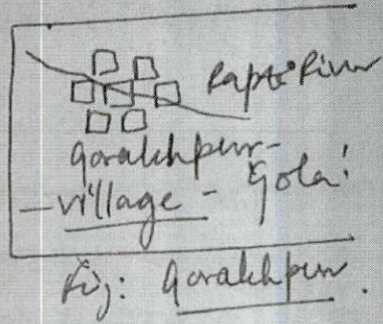 Rapti River
Gorakhpur-
village - Gola!
Fig: Gorakhpur.